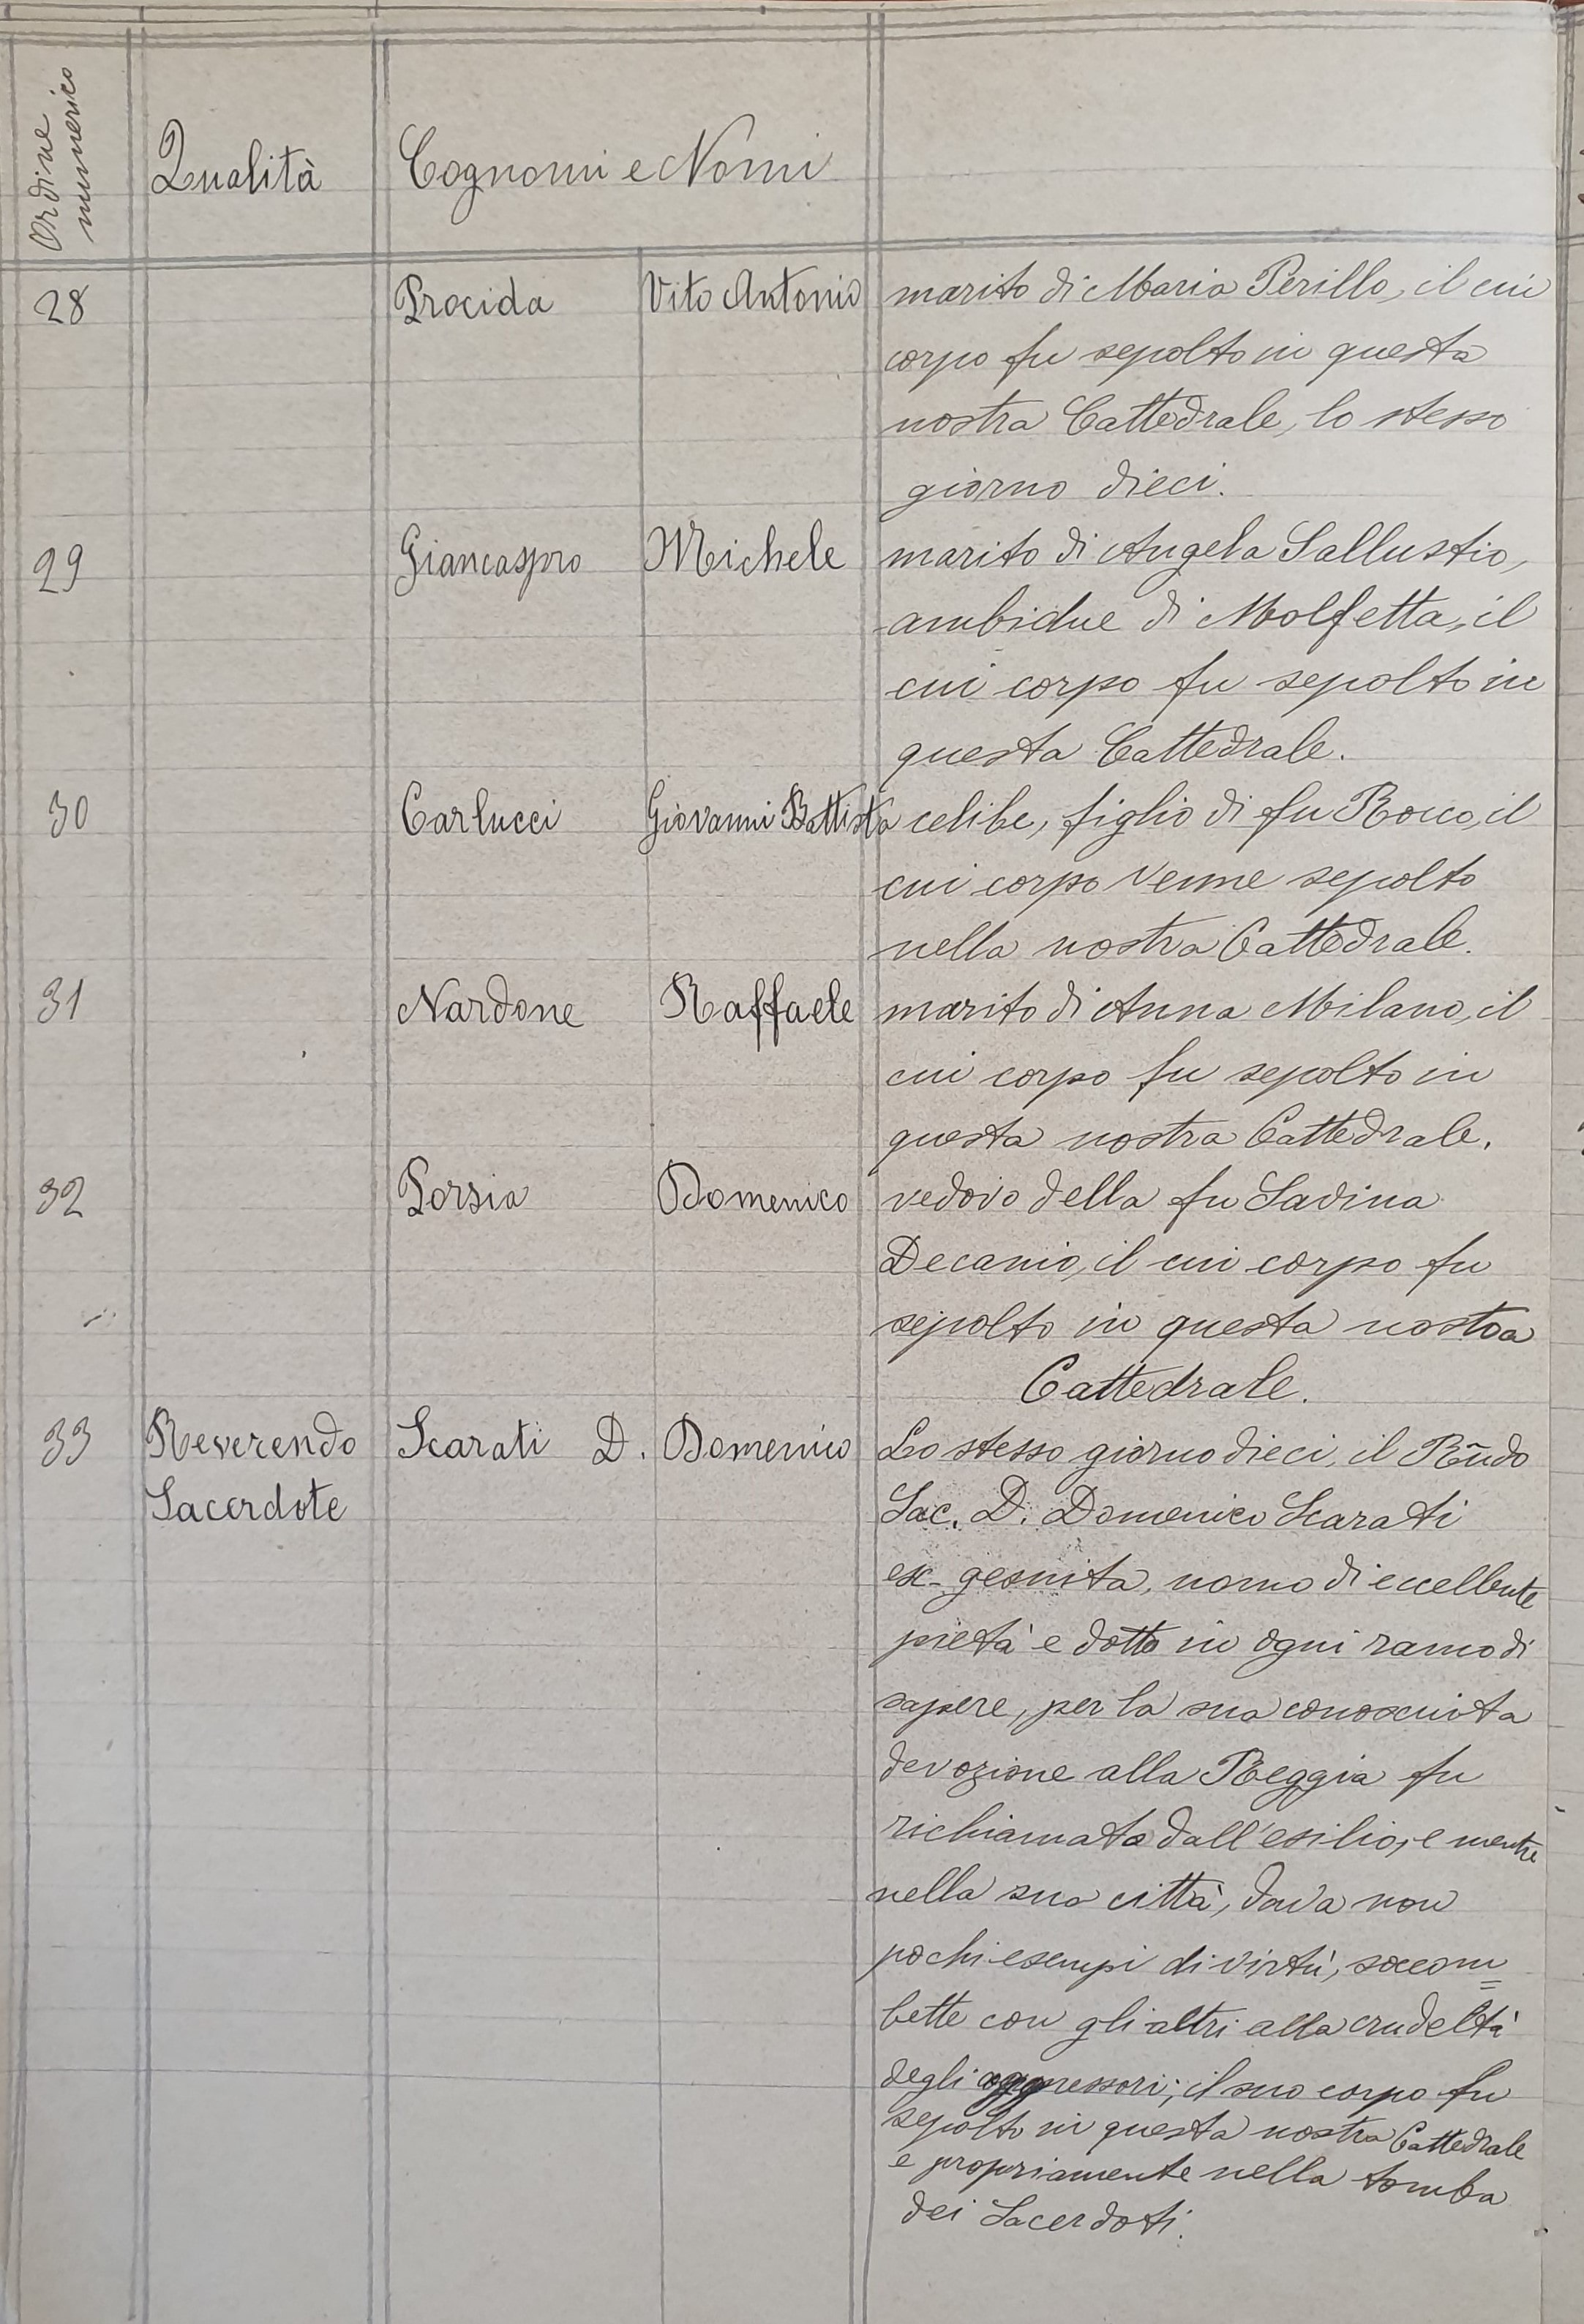 Ordine numerico Qualità Cognomi e Nomi
28 Procida Vito Antonio marito di Maria Perillo, il cui
corpo fu sepolto in questa
nostra Cattedrale, lo stesso
giorno dieci.
29 Giancaspro Michele marito di Angela Sallustio,
ambidue di Molfetta, il
cui corpo fu sepolto in
questa Cattedrale.
30 Carlucci Giovanni Battista celibe, figlio di fu Rocco, il
cui corpo venne sepolto
nella nostra Cattedrale.
31 Nardone Raffaele marito di Anna Milano, il
cui corpo fu sepolto in
questa nostra Cattedrale.
32 Porsia Domenico vedovo della fu Savina
Decanio, il cui corpo fu
sepolto in questa nostra
Cattedrale.
33 Reverendo Scarati D. Domenico Lo stesso giorno dieci, il Rñdo
Sacerdote Sac. D. Domenico Scarati
ex-gesuita, uomo di eccellente
pietà e dotto in ogni ramo di
sapere, per la sua conosciuta
devozione alla Reggia fu
richiamato dall'esilio, e mentre
nella sua città, dava non
pochi esempi di virtù, soccom=
bette con gli altri alla crudeltà
degli aggressori; il suo corpo fu
sepolto in questa nostra Cattedrale
e propriamente nella tomba
dei Sacerdoti.